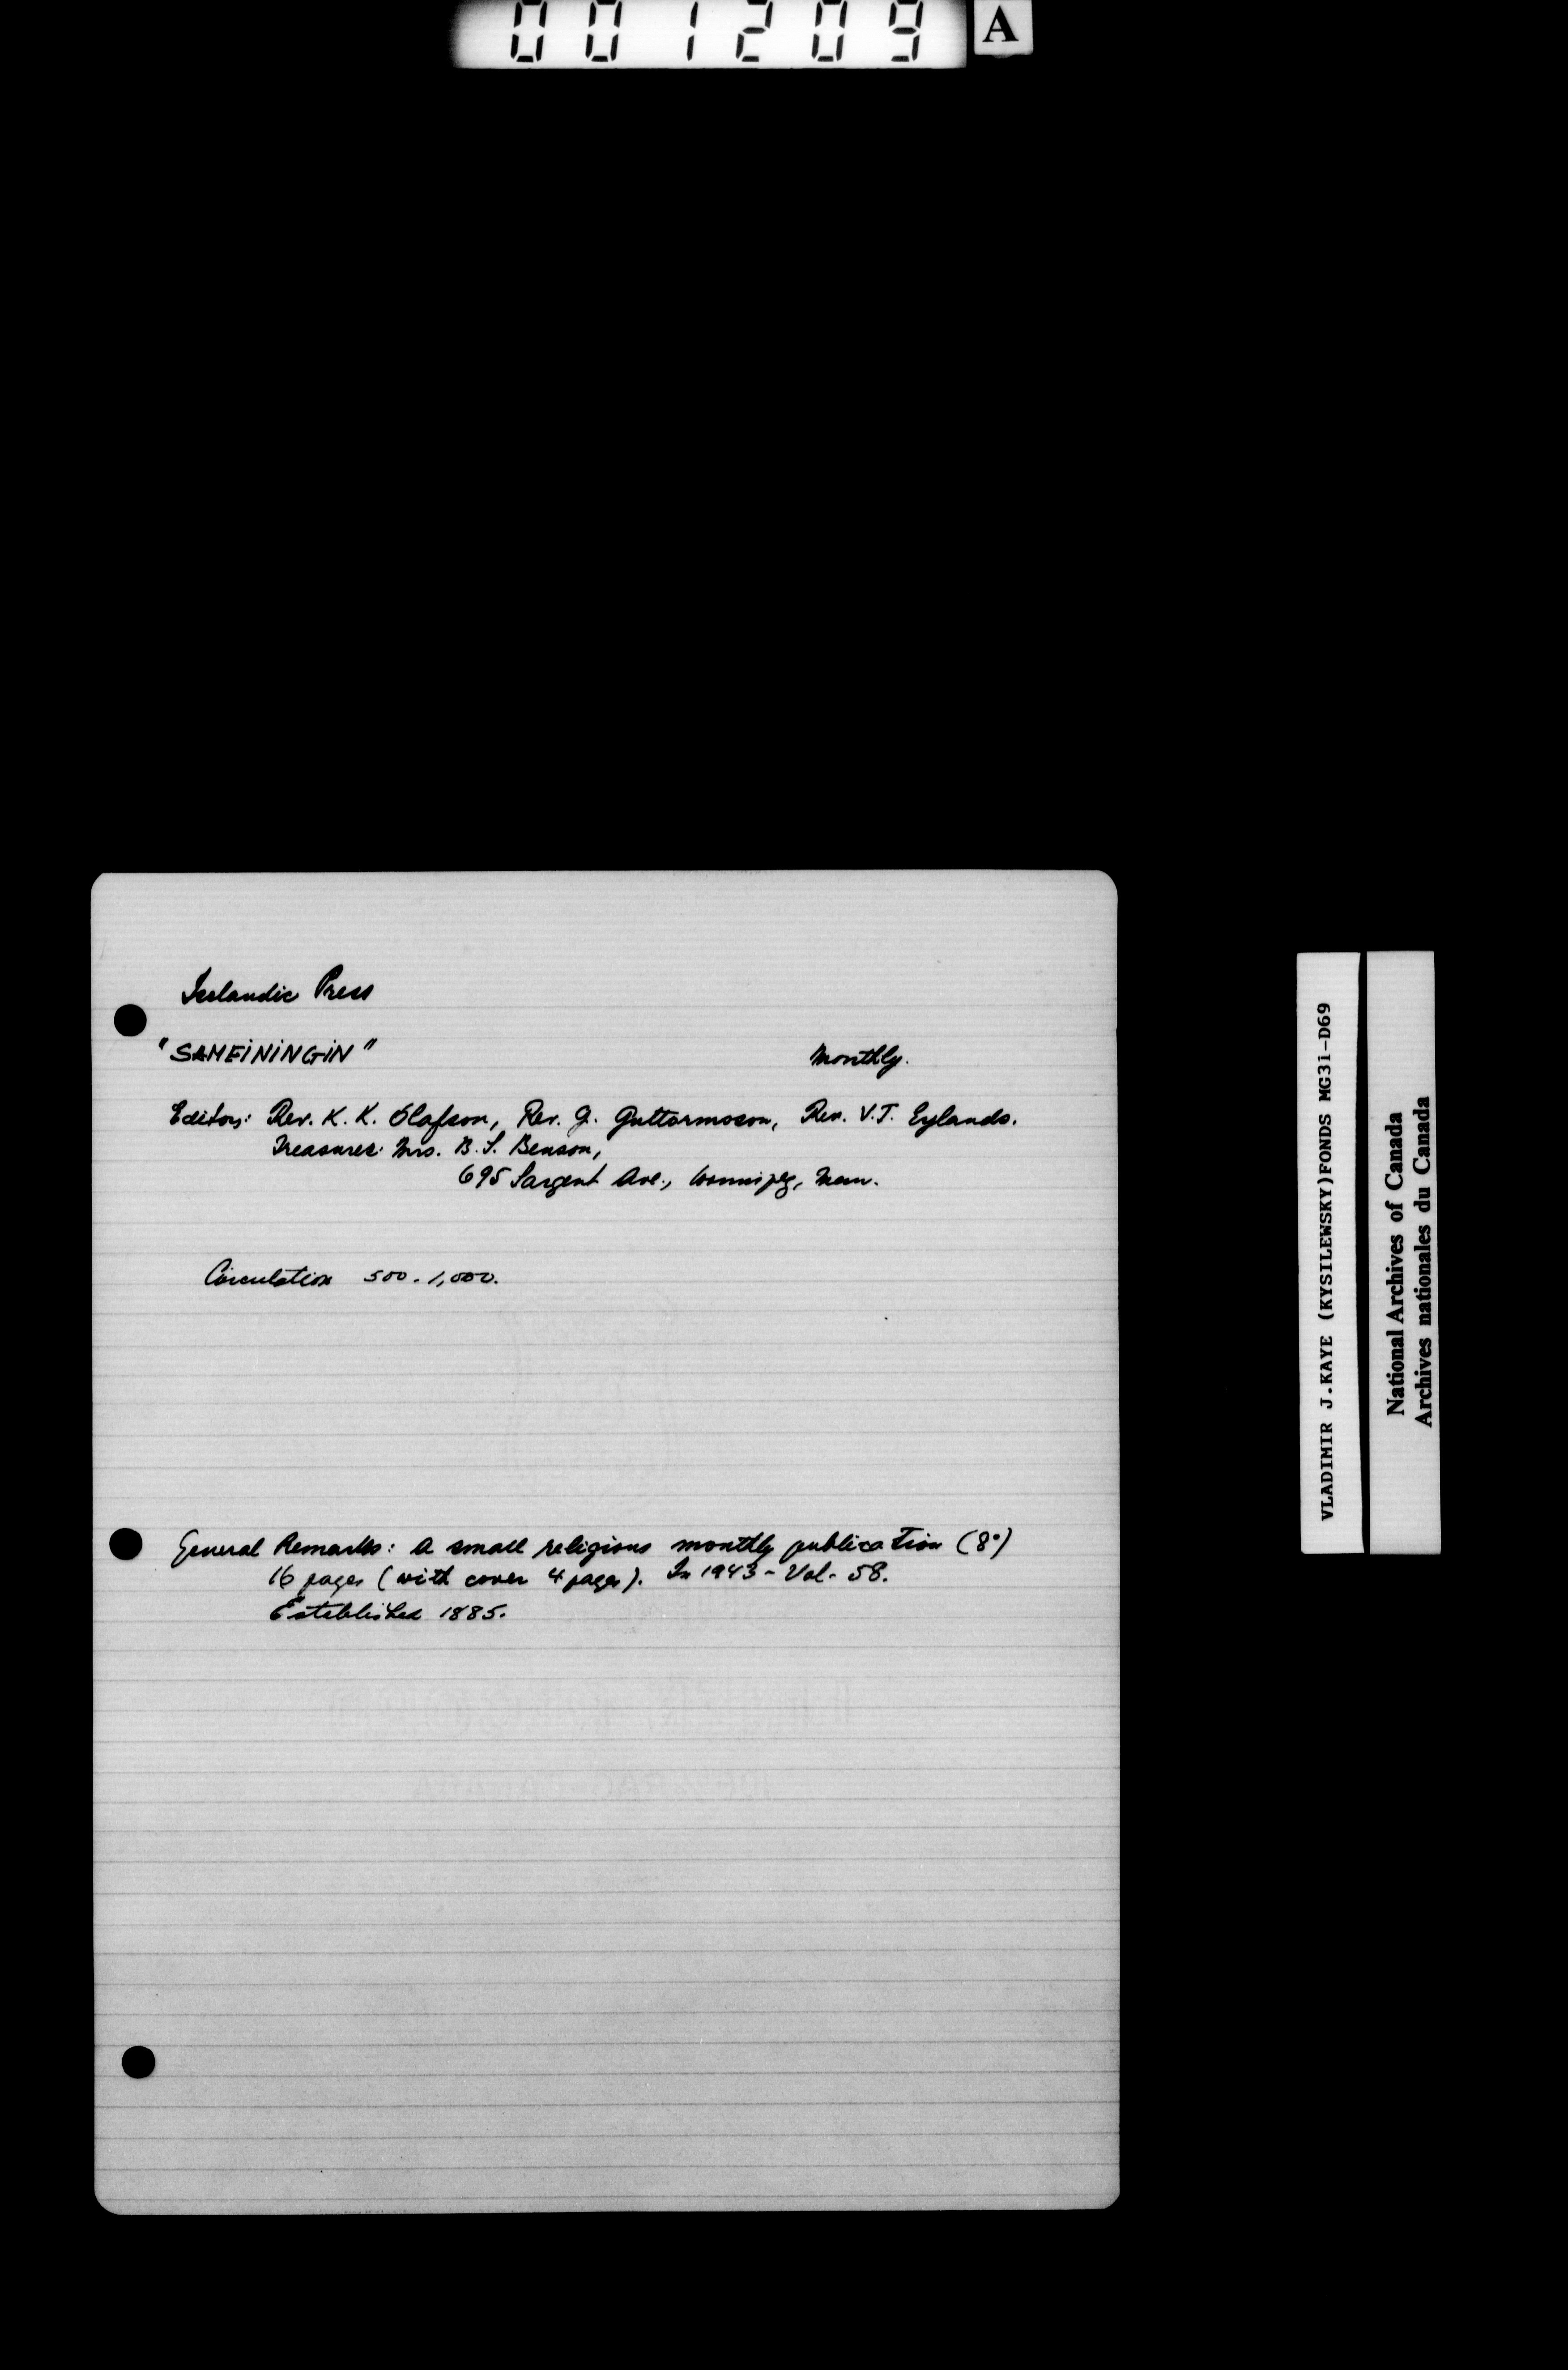 001209 A
Icelandic Press
"SAMEiNiNGiN" Monthly.
Editors: Rev. K. K. Olafson, Rev. G. Guttormsson, Rev. V.J. Eylands.
Treasurer: Mrs. B. S. Benson,
695 Sargent Ave., Winnipeg, Man.
Circulation 500-1,000.
General Remarks: A small religious monthly publication (8°)
16 pages (with cover 4 pages). In 1943 - Vol. 58.
Established 1885.
VLADIMIR J.KAYE (KYSILEWSKY)FONDS MG31-D69
National Archives of Canada
Archives nationales du Canada